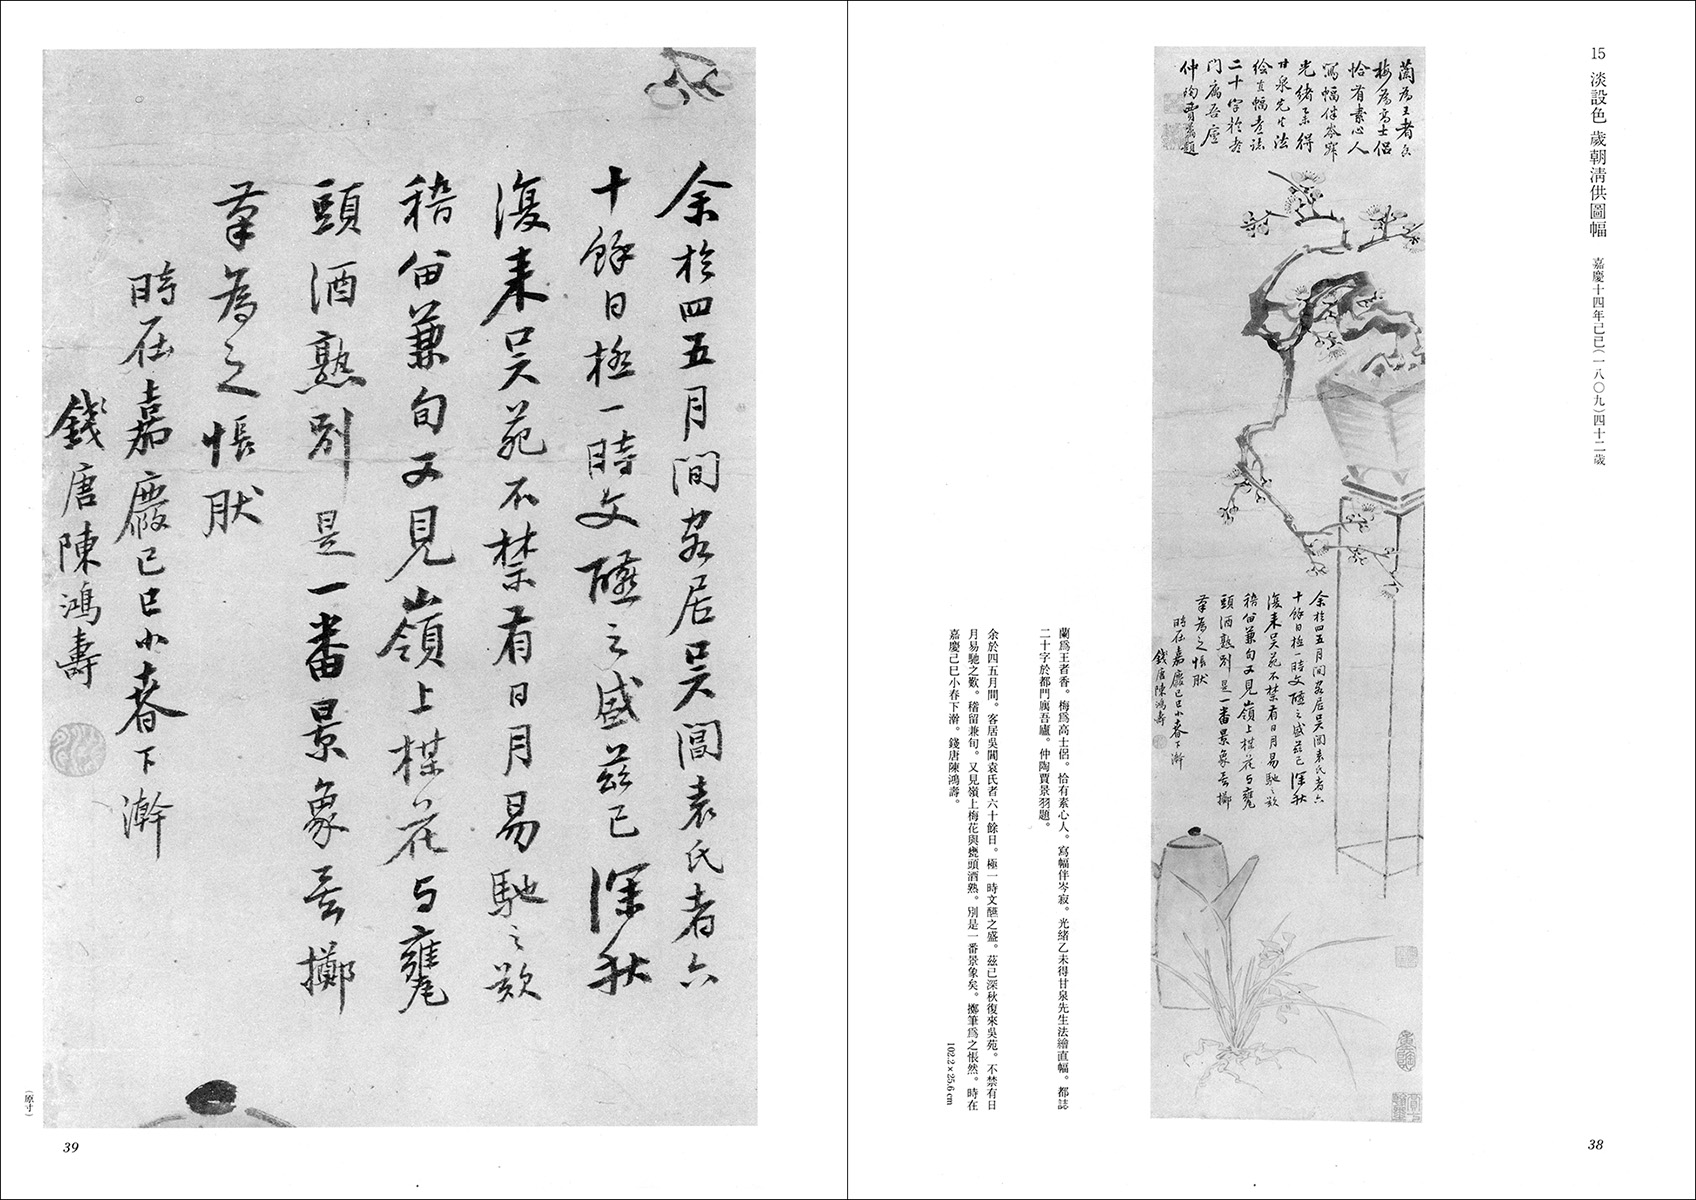 15 淡設色 歲朝清供圖幅 嘉慶十四年己巳(一八〇九)四十二歲
蘭為王者香
梅為高士侶
恰有素心人
寫幅伴岑寂
光緒乙未得
甘泉先生法
繪直幅都誌
二十字於都
門廡吾廬
仲陶賈景羽題
余於四五月間客居吳閶袁氏者六
十餘日極一時文醼之盛茲已深秋
復來吳苑不禁有日月易馳之歎
稽留兼旬又見嶺上楳花与甕
頭酒熟別是一番景象矣擲
筆為之悵肰
時在嘉慶己巳小春下澣
錢唐陳鴻壽
蘭爲王者香。梅爲高士侶。恰有素心人。寫幅伴岑寂。光緒乙未得甘泉先生法繪直幅。都誌
二十字於都門廡吾廬。仲陶賈景羽題。
余於四五月間。客居吳閶袁氏者六十餘日。極一時文醼之盛。茲已深秋復來吳苑。不禁有日
月易馳之歎。稽留兼旬。又見嶺上梅花與甕頭酒熟。別是一番景象矣。擲筆爲之悵然。時在
嘉慶己巳小春下澣。錢唐陳鴻壽。
102.2×25.6 cm
38
余於四五月間客居吳閶袁氏者六
十餘日極一時文醼之盛茲已深秋
復來吳苑不禁有日月易馳之歎
稽留兼旬又見嶺上楳花与甕
頭酒熟別是一番景象矣擲
筆為之悵肰
時在嘉慶己巳小春下澣
錢唐陳鴻壽
(原寸)
39